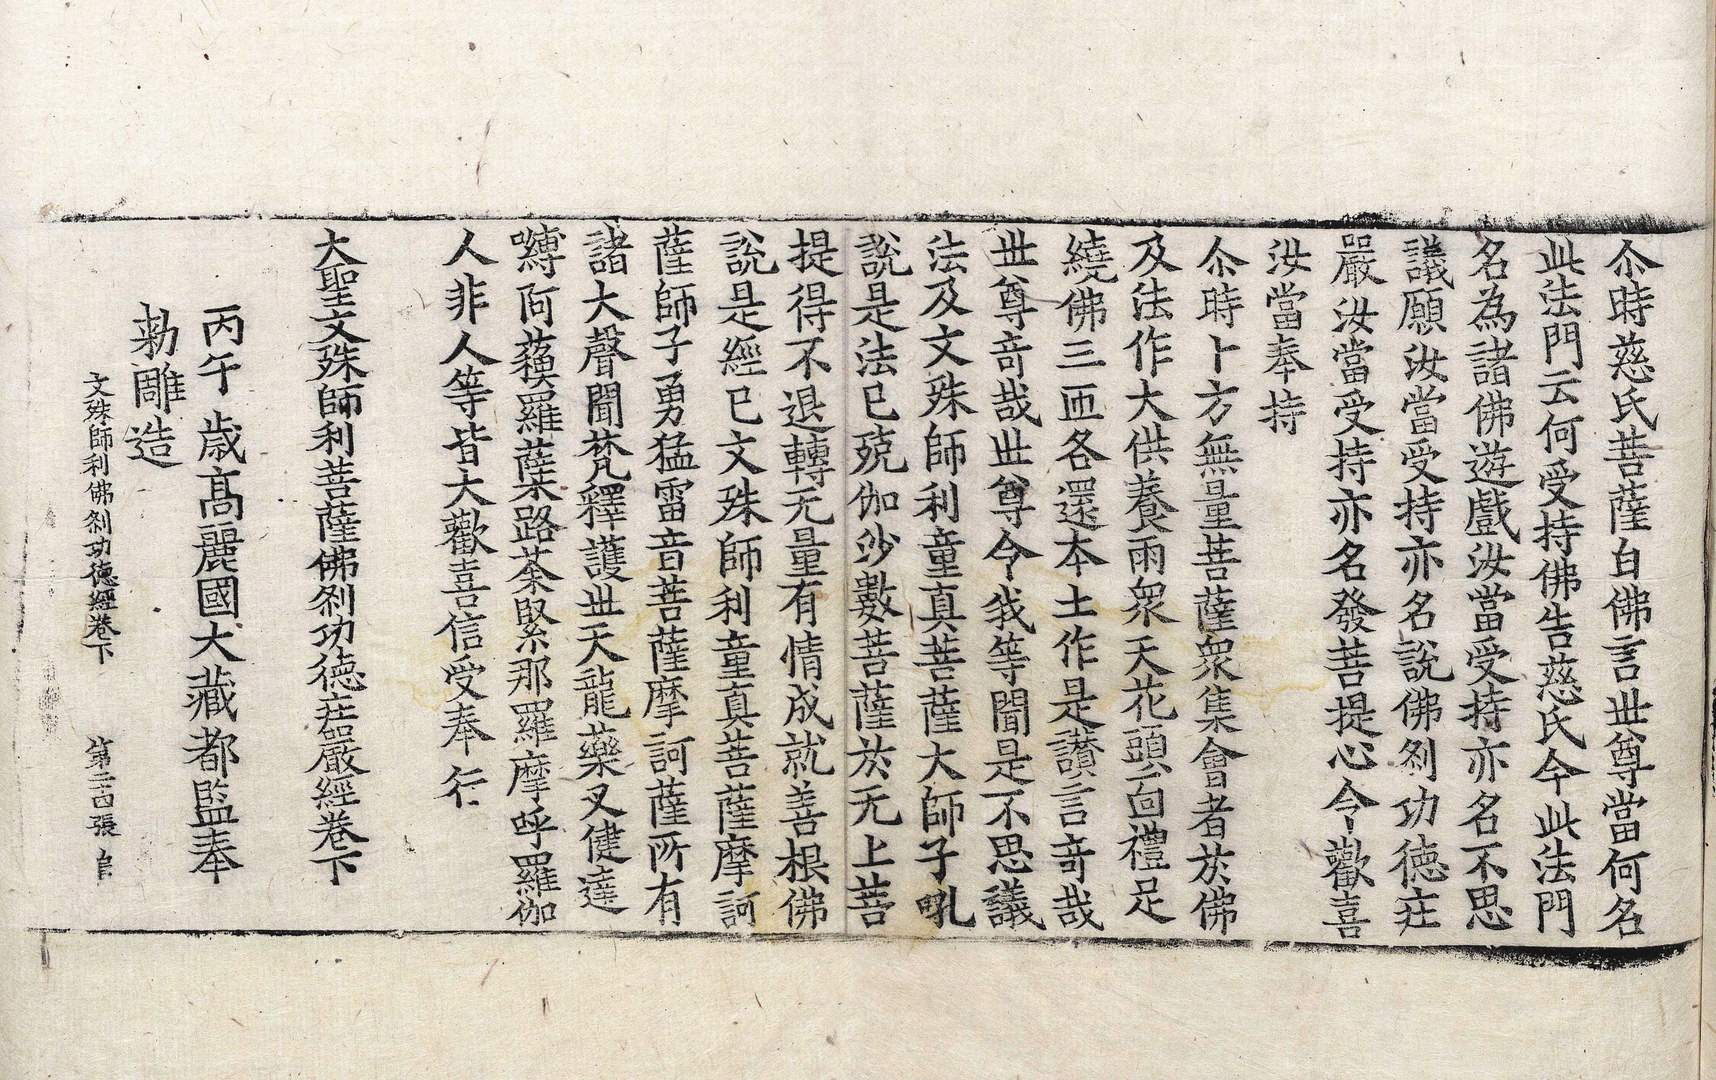 尒時慈氏菩薩白佛言世尊當何名
此法門云何受持佛告慈氏今此法門
名為諸佛遊戲汝當受持亦名不思
議願汝當受持亦名說佛刹功德莊
嚴汝當受持亦名發菩提心令歡喜
汝當奉持
尒時十方無量菩薩衆集會者於佛
及法作大供養雨衆天花頭面禮足
繞佛三匝各還本土作是讃言竒哉
世尊竒哉世尊令我等聞是不思議
法及文殊師利童真菩薩大師子吼
說是法已殑伽沙數菩薩於无上菩
提得不退轉无量有情成就善根佛
說是經已文殊師利童真菩薩摩訶
薩師子勇猛雷音菩薩摩訶薩所有
諸大聲聞梵釋護世天龍藥叉健達
嚩阿蘓羅蘖路荼緊那羅摩呼羅伽
人非人等皆大歡喜信受奉行
大聖文殊師利菩薩佛刹功德莊嚴經卷下
丙午歳高麗國大藏都監奉
勅雕造
文殊師利佛刹功德經卷下 第二十四張